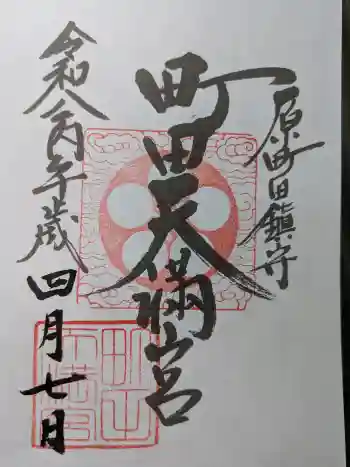 原町田鎮守
町田天満宮
令和八丙午歳
四月七日